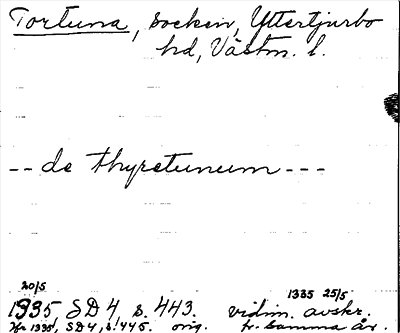 Tortuna, socken, Yttertjurbo
hd, Västm. l.
-- de thyretunum ---
20/5
1335, SD 4, s. 443.
1335 25/5
vidim. avskr.
1335, SD 4, s. 445. orig.
fr. samma år.